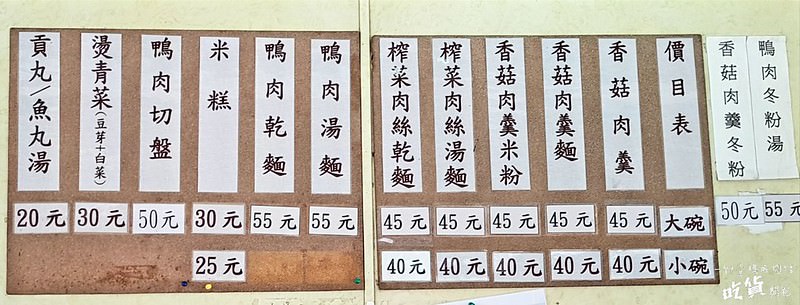 鴨肉冬粉湯
55元
香菇肉羹冬粉
50元
價目表
大碗
小碗
香菇肉羹
45元
40元
香菇肉羹麵
45元
40元
香菇肉羹米粉
45元
40元
榨菜肉絲湯麵
45元
40元
榨菜肉絲乾麵
45元
40元
鴨肉湯麵
55元
鴨肉乾麵
55元
米糕
30元
25元
鴨肉切盤
50元
燙青菜(豆芽+白菜)
30元
貢丸/魚丸湯
20元
吃貨